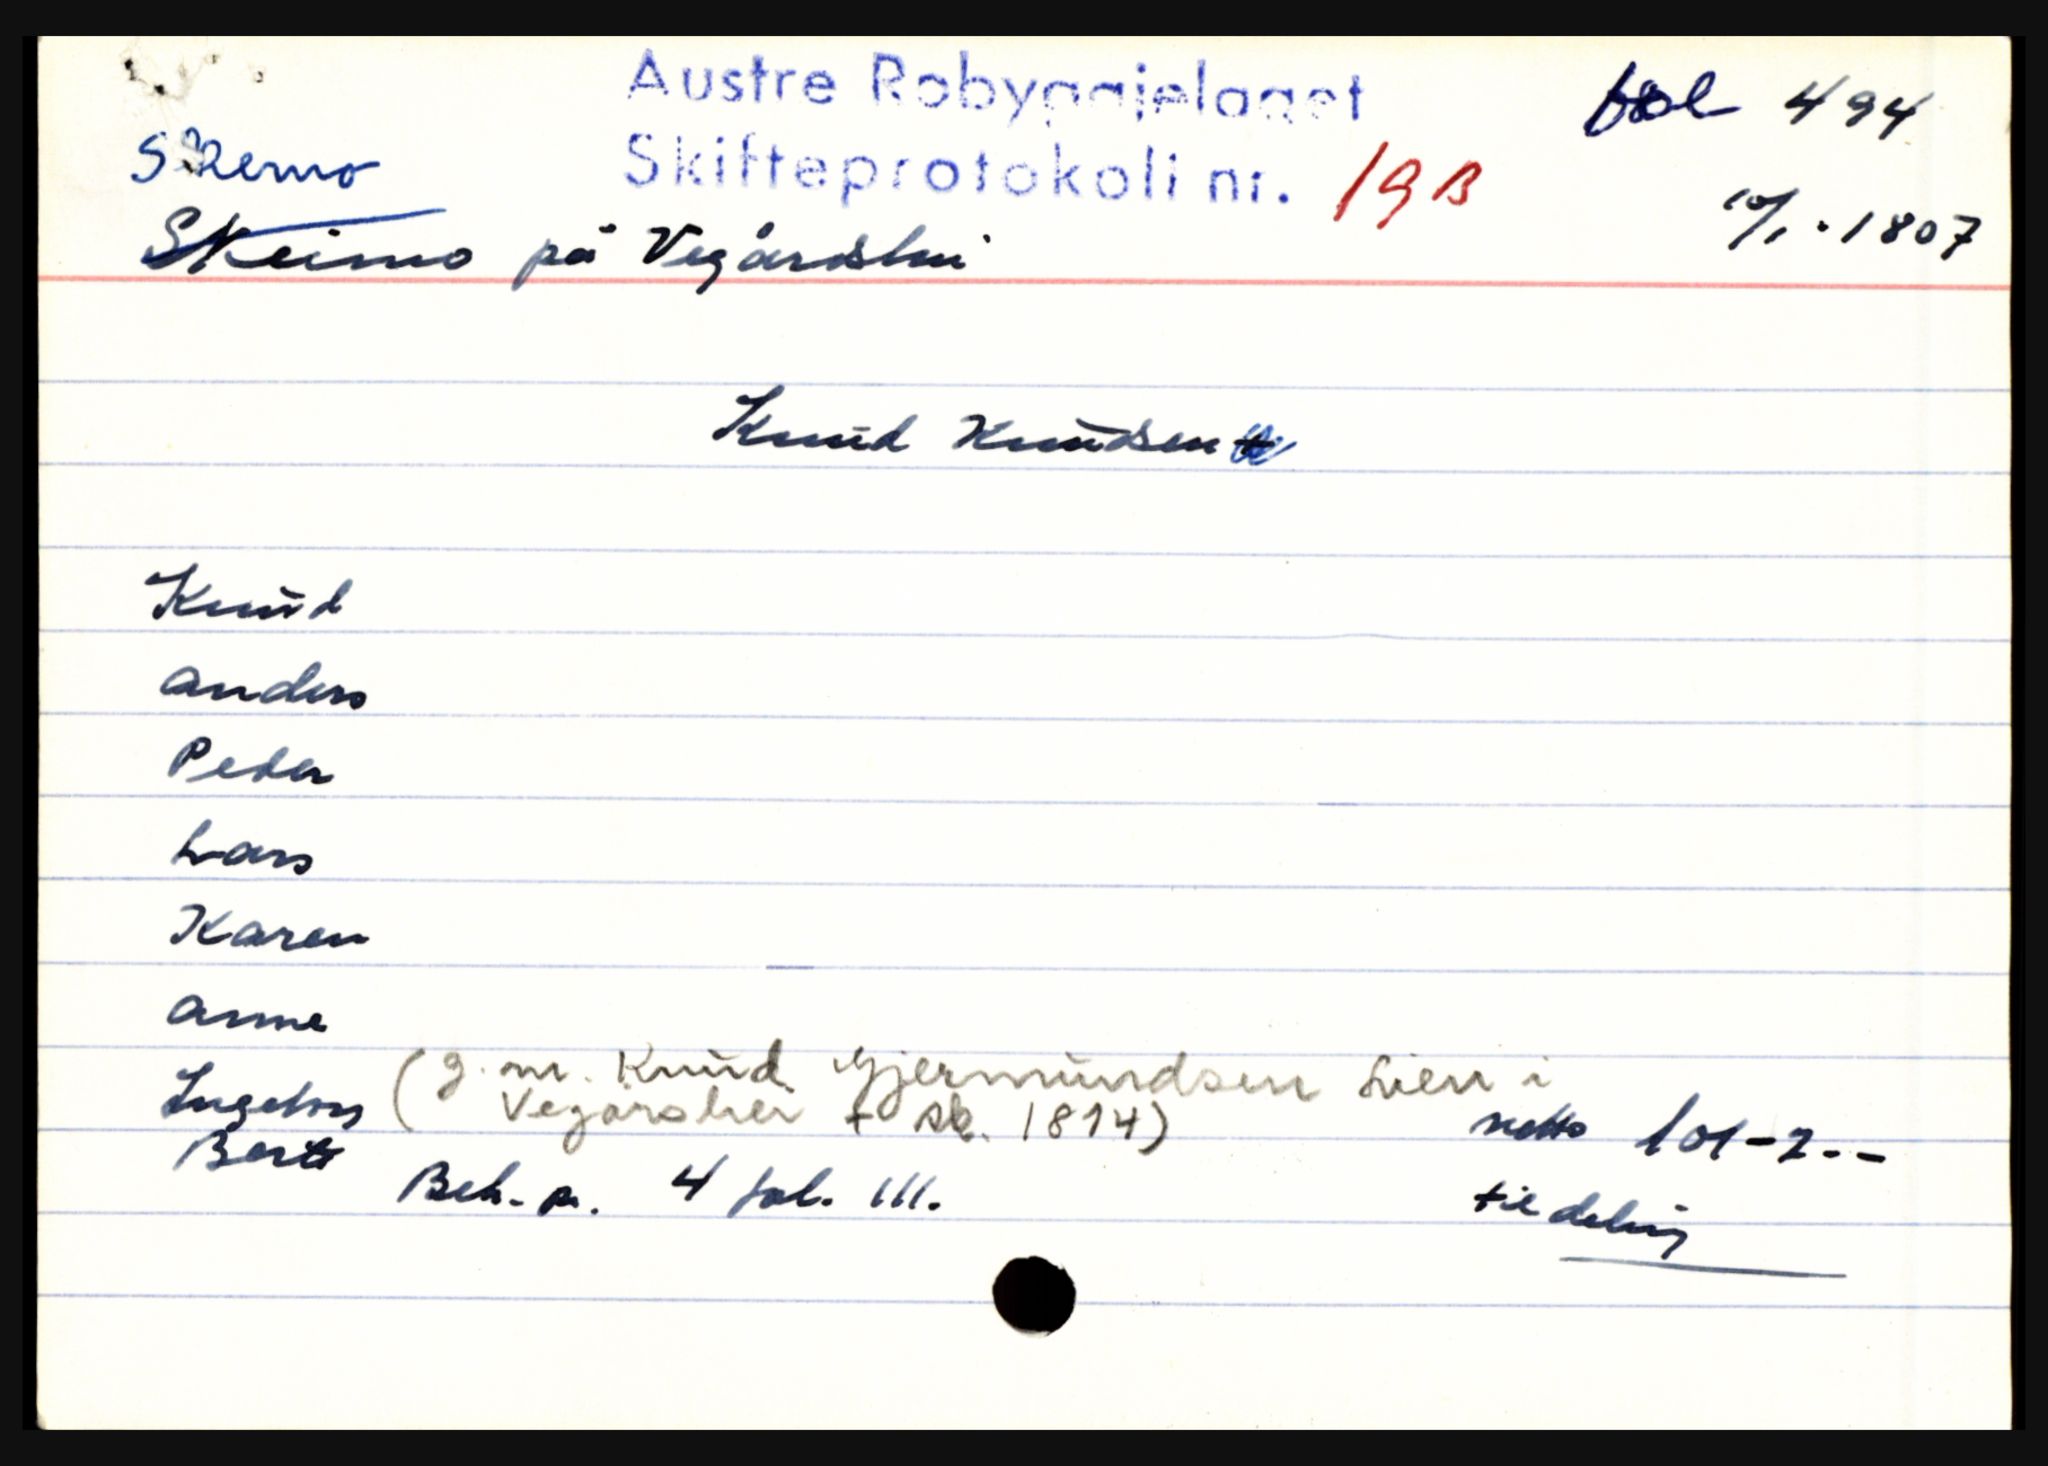 Austre Robyggjelaget fol 494
Skifteprotokoll nr. 19B 10/1. 1807
Skemo
Skeimo på Vegårdshei
Knud Knudsen
Knud
Anders
Peder
Lars
Karen
Anne
Ingeborg (g.m. Knud Gjermundsen Lien i
Vegårshei + sk. 1814)
netto 101-2.-
Berte
Beh. p. 4 fol. 111.
til deling